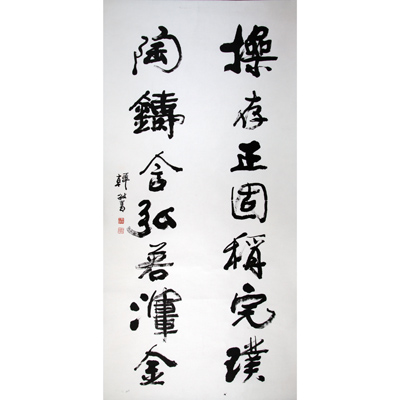 操存正固稱完璞
陶鑄含弘若渾金
韓敏書